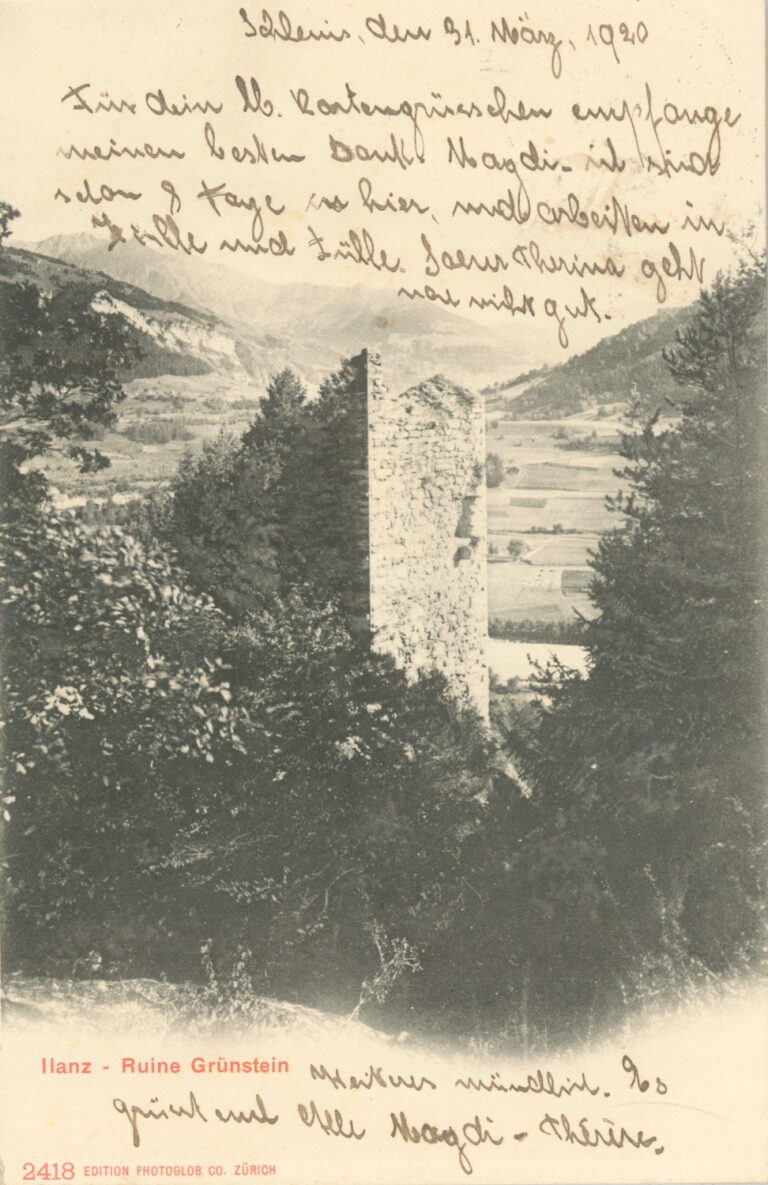 Schleuis, den 31. März, 1920
Für dein lb. Kartengrüsschen empfange
meinen besten Dank. Magdi. sind
schon 8 Tage hier, und arbeiten in
Hülle und Fülle. Soeur Therina geht
noch nicht gut.
Ilanz - Ruine Grünstein
Weiteres mündlich. Es
grüsst euch Alle Magdi - Thérèse.
2418 EDITION PHOTOGLOB CO. ZÜRICH